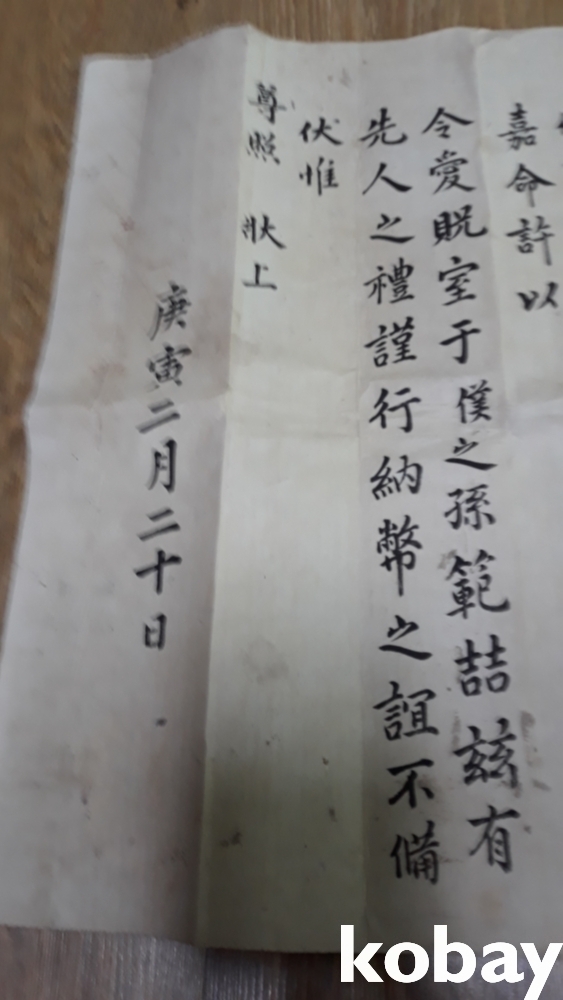 嘉命許以
令愛貺室于僕之孫範喆玆有
先人之禮謹行納幣之誼不備
伏惟
尊照 狀上
庚寅二月二十日
kobay